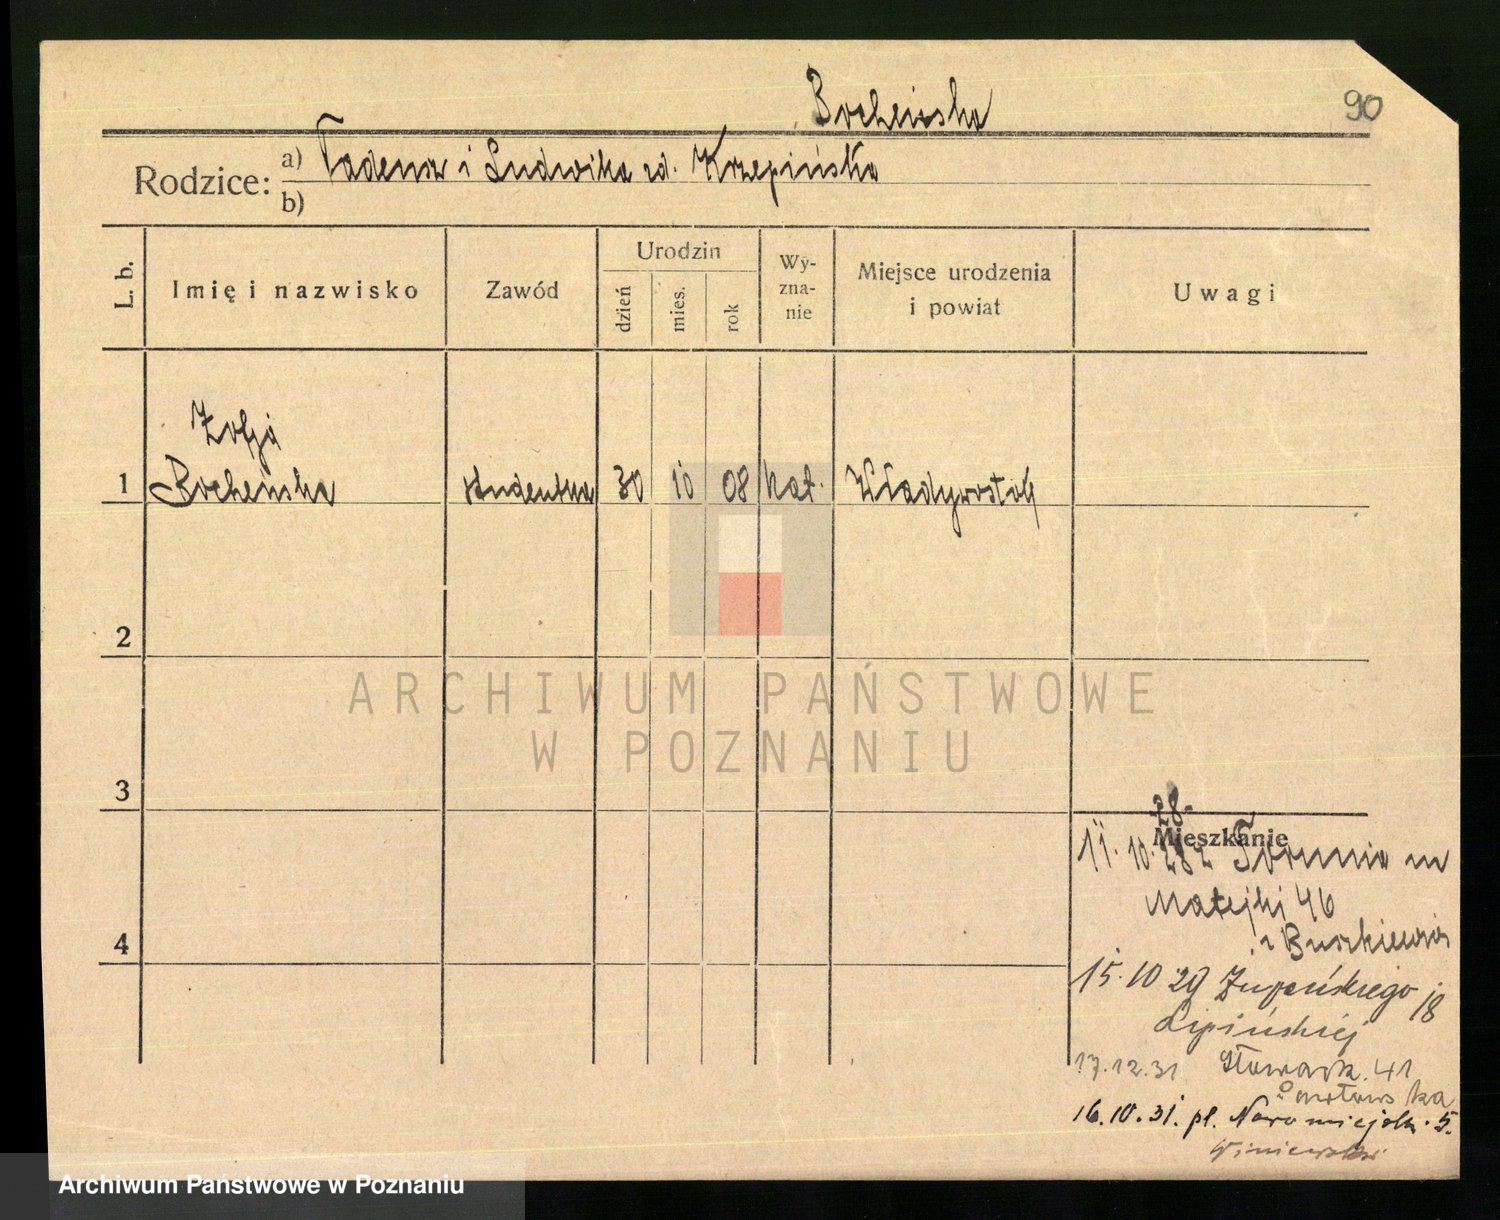 Bocheńska
90
Rodzice: a) Tadeusz i Ludwika zd. Krzepińska
b)
L. b.
Imię i nazwisko
Zawód
Urodzin
dzień
mies.
rok
Wy-
zna-
nie
Miejsce urodzenia
i powiat
Uwagi
Zofja
1 Bocheńska studentka 30 10 08 kat. Władywostok
2
3
4
ARCHIWUM PAŃSTWOWE
W POZNANIU
28-
Mieszkanie
11. 10. 28 z Torunia m
Matejki 46
15. 10 29 Żupańskiego 18
Lipińskiej
17.12.31 Słowack. 41
16.10.31. pl. Nowomiejski 5.
Archiwum Państwowe w Poznaniu